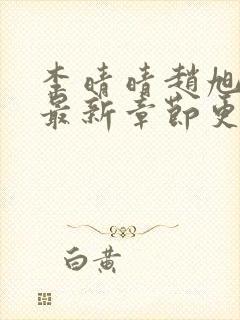 李晴晴趙旭
最新章節更
白黄